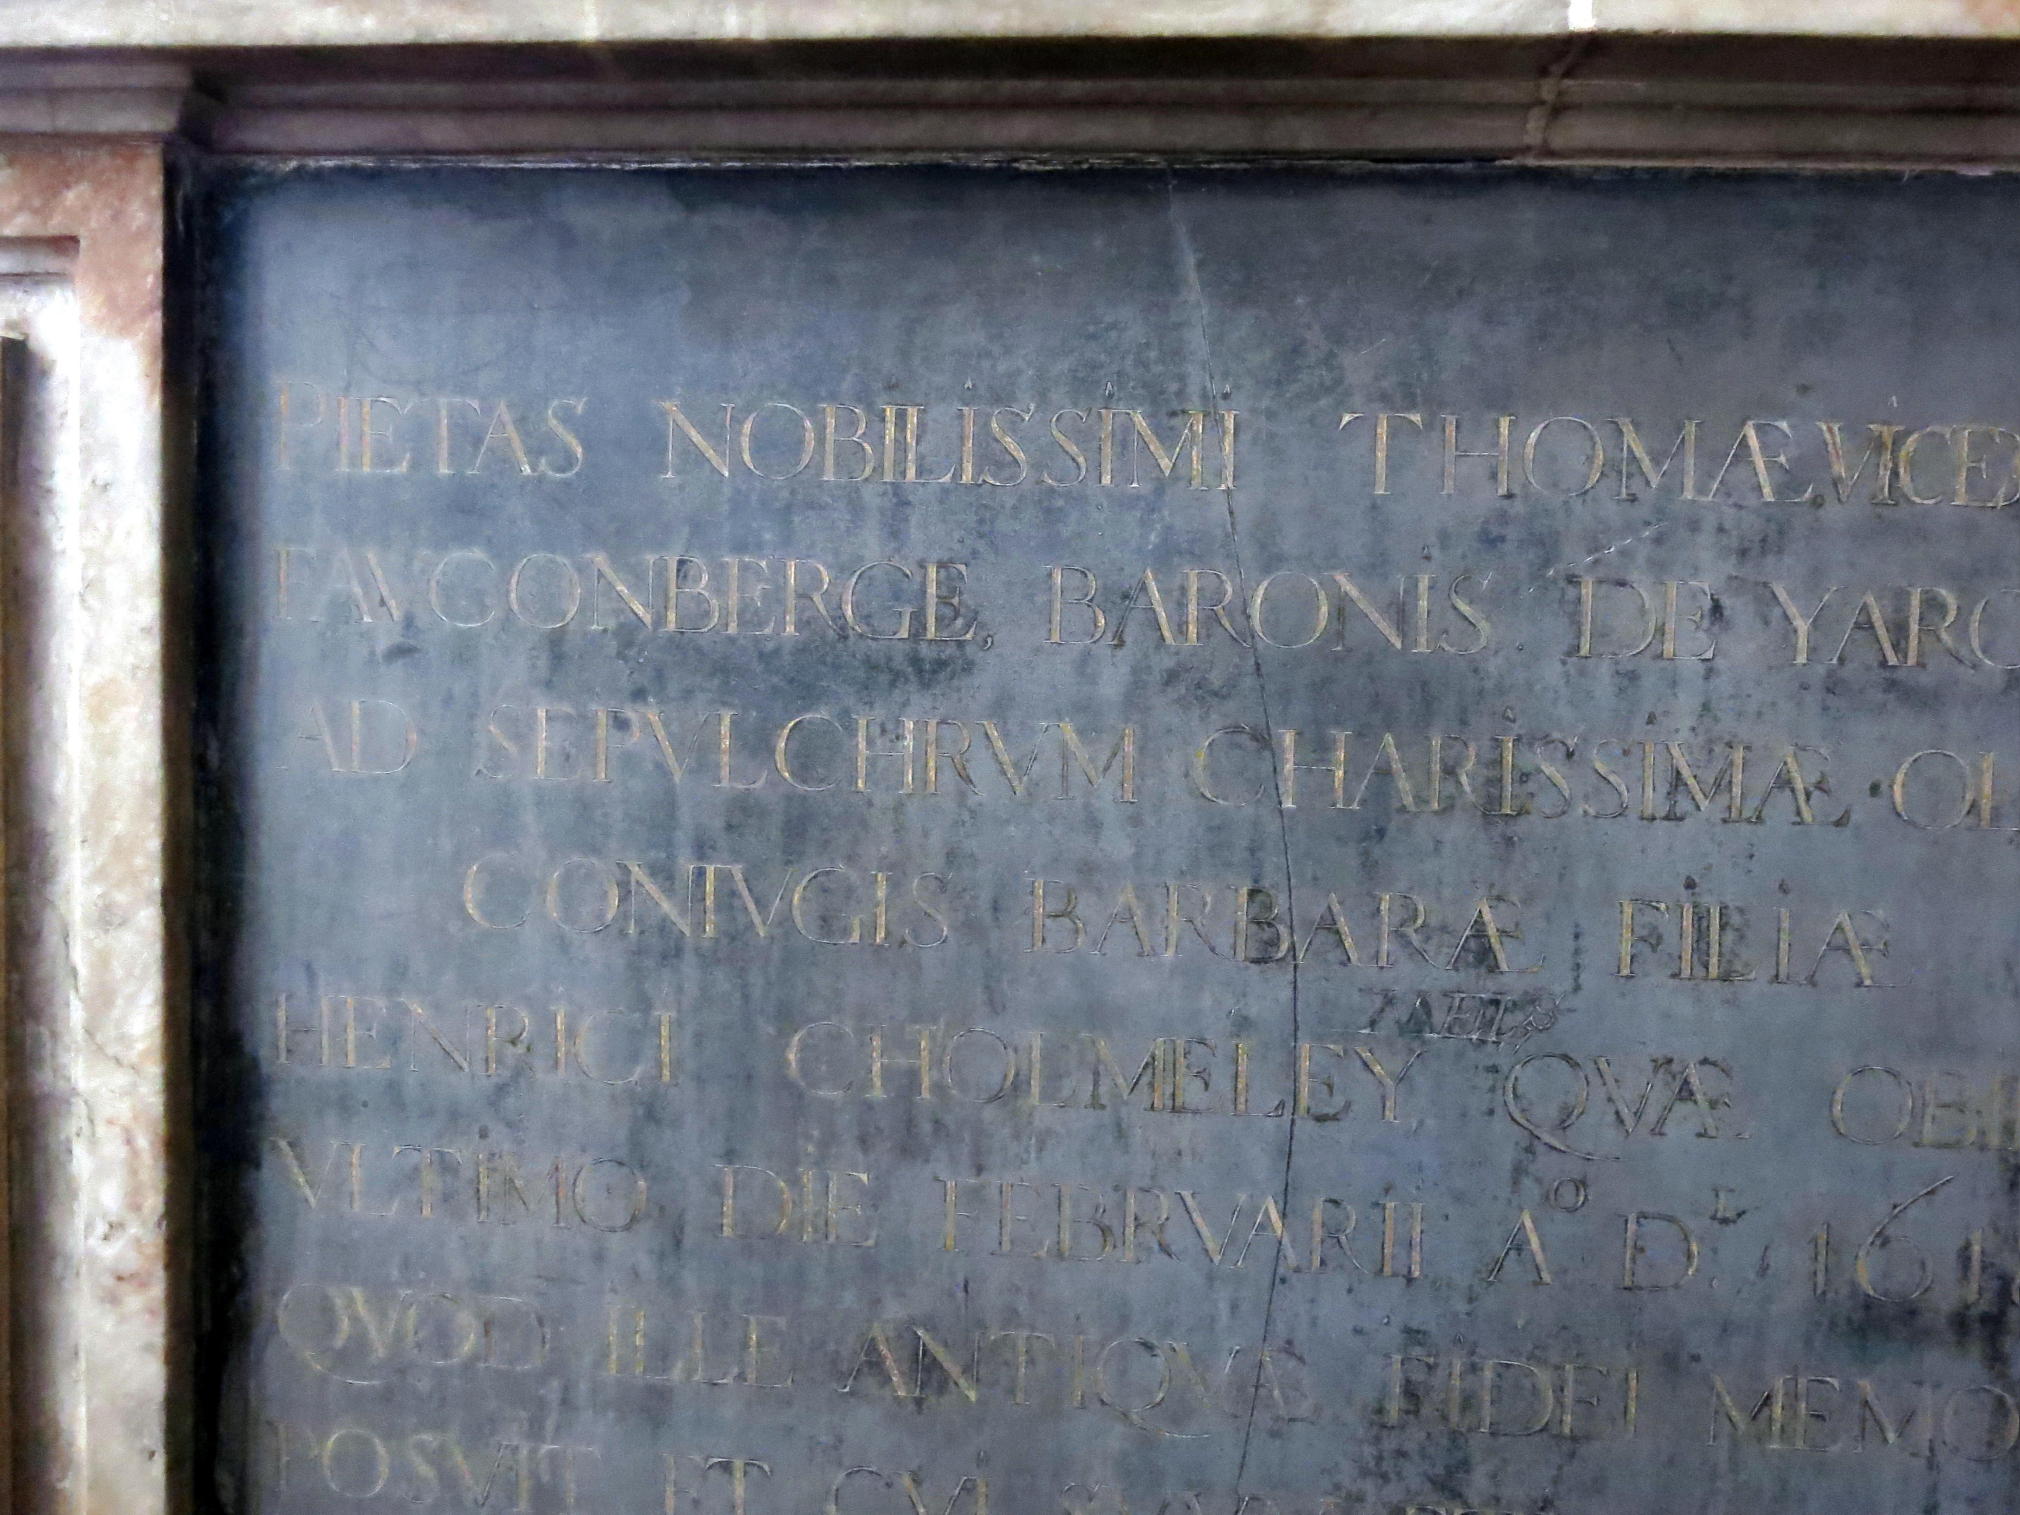 PIETAS NOBILISSIMI THOMÆ VICE
FAVCONBERGE, BARONIS DE YAR
AD SEPVLCHRVM CHARISSIMÆ OL
CONIVGIS BARBARÆ FILIÆ
HENRICI CHOLMELEY QVÆ OBI
VLTIMO DIE FEBRVARII A° D. 161
QVOD ILLE ANTIQVÆ FIDEI MEMO
POSVIT ET CVI